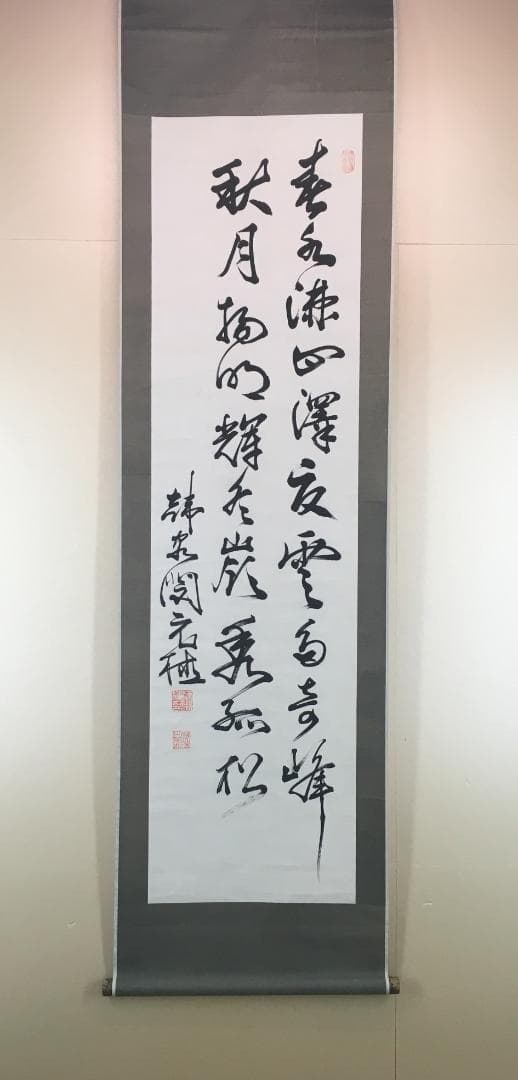 春水滿四澤夏雲多奇峰
秋月揚明輝冬嶺秀孤松
閔